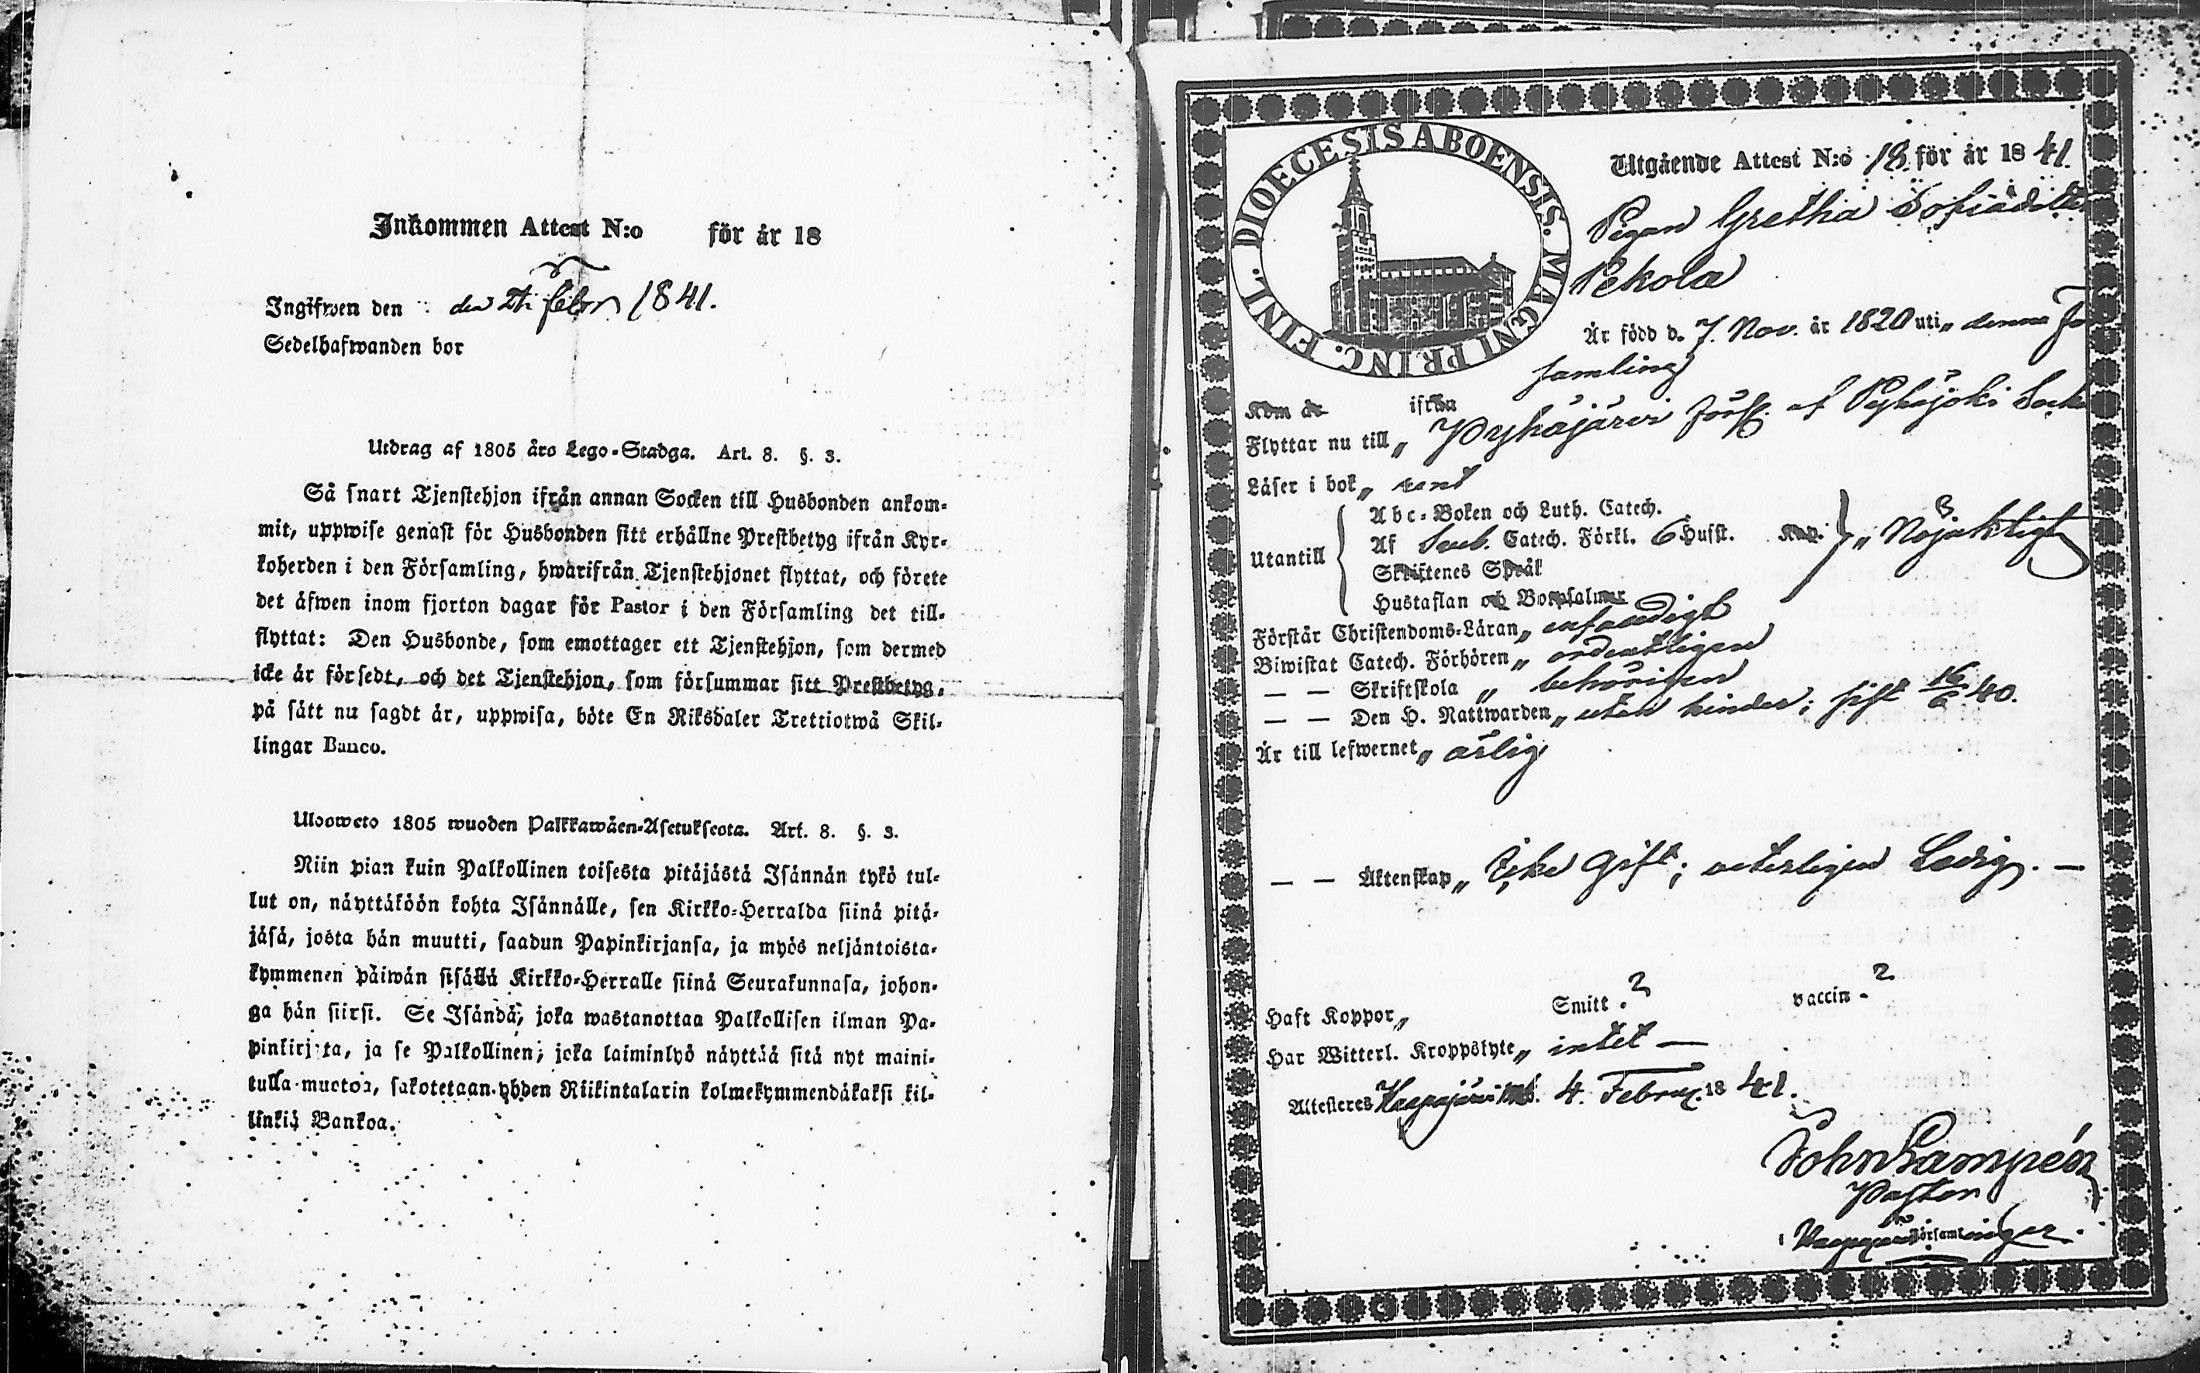 Inkommen Attest N:o för år 18
Ingifwen den den 21 febr 1841.
Sedelhafwanden bor
Utdrag af 1805 års Lego-Stadga. Art. 8. §. 3.
Så snart Tjenstehjon ifrån annan Socken till Husbonden ankom-
mit, uppwise genast för Husbonden sitt erhållne Prestbetyg ifrån Kyr-
koherden i den Församling, hwarifrån Tjenstehjonet flyttat, och förete
det äfwen inom fjorton dagar för Pastor i den Församling det till-
flyttat: Den Husbonde, som emottager ett Tjenstehjon, som dermed
icke är försedt, och det Tjenstehjon, som försummar sitt Prestbetyg,
på sätt nu sagdt är, uppwisa, böte En Riksdaler Trettiotwå Skil-
lingar Banco.
Ulosweto 1805 wuoden Palkkawäen-Asetuksesta. Art. 8. §. 3.
Niin pian kuin Palkollinen toisesta pitäjästä Isännän tykö tul-
lut on, näyttäköön kohta Isännälle, sen Kirkko-Herralda siinä pitä-
jäsä, josta hän muutti, saadun Papinkirjansa, ja myös neljäntoista-
kymmenen päiwän sisällä Kirkko-Herralle siinä Seurakunnasa, johon-
ga hän siirsi. Se Isändä, joka wastanottaa Palkollisen ilman Pa-
pinkirjata, ja se Palkollinen, joka laiminlyö näyttää sitä nyt maini-
tulla muotoa, sakotetaan yhden Riikintalarin kolmekymmendäkaksi kil-
linkiä Bankoa.
DIOECESIS ABOENSIS. MAGNI PRINC. FINL.
Utgående Attest N:o 18. för år 1841.
Pigan Gretha Sofia
Pekola
Är född d. 7. Nov. år 1820 uti denna För
samling
Kom år ifrån
Flyttar nu till Pyhäjärvi förs. af Pyhäjoki Sock
Läser i bok rent
Utantill
Abc-Boken och Luth. Catech.
Af Sveb. Catech. Förkl. 6 Husst. Kap. Nöjaktigt
Skriftenes Språk
Hustaflan och Botpsalmer
Förstår Christendoms-Läran enfaldigt
Biwistat Catech. Förhören ordentligen
— — Skriftskola behörigen
— — Den H. Nattwarden utan hinder; sist 16/40.
Är till lefwernet ärlig
— — Äktenskap Icke Gift; veterligen Ledig. —
Haft Koppor Smitt. ? vaccin - ?
Har Witterl. Kroppslyte intet —
Attesteres Haapajärvi 4. Februar. 1841.
Joh. Lampén
Pastor
i Haapajärvi församlingar.